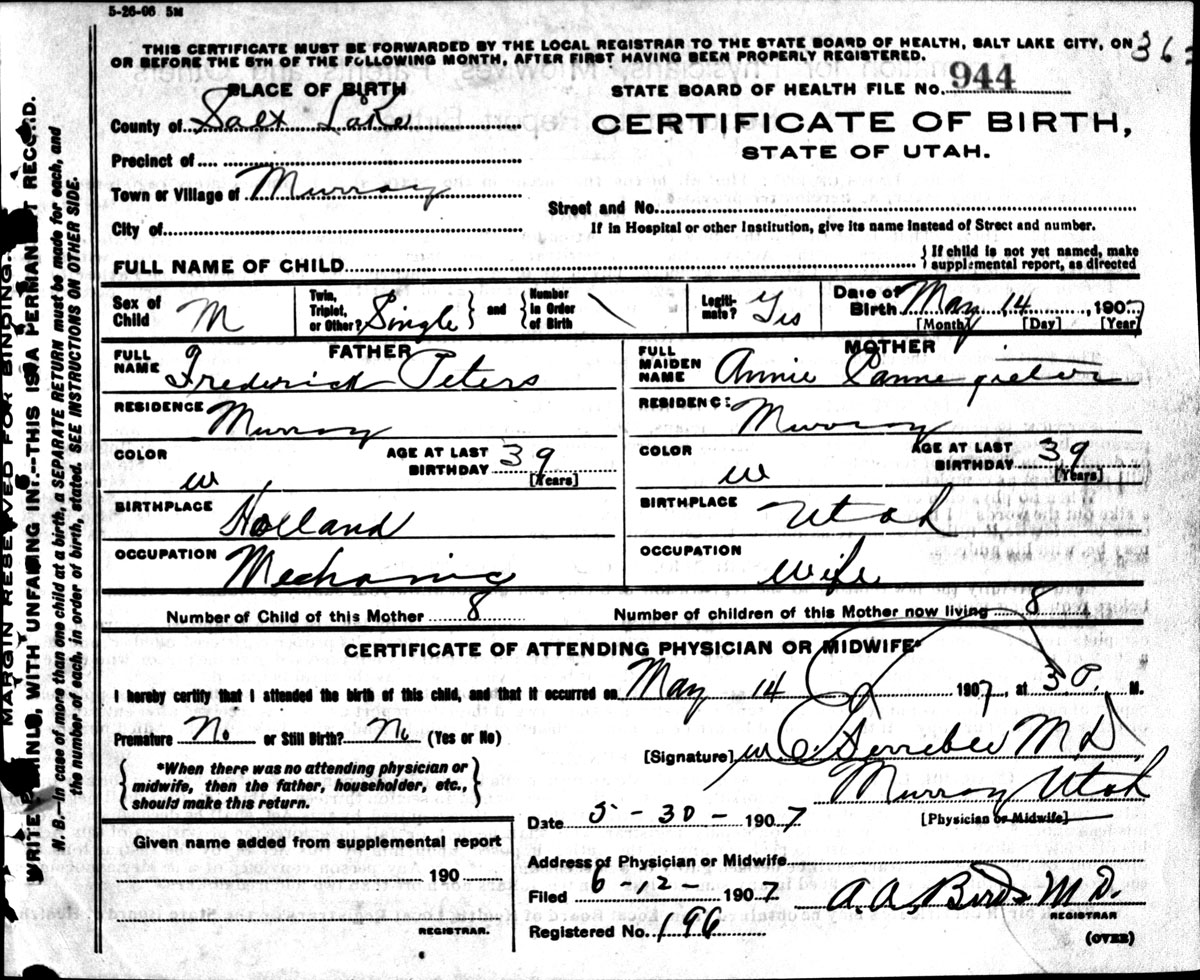 5-26-06 5M
THIS CERTIFICATE MUST BE FORWARDED BY THE LOCAL REGISTRAR TO THE STATE BOARD OF HEALTH, SALT LAKE CITY, ON
OR BEFORE THE 5TH OF THE FOLLOWING MONTH, AFTER FIRST HAVING BEEN PROPERLY REGISTERED.
PLACE OF BIRTH
STATE BOARD OF HEALTH FILE No. 944
County of Salt Lake
CERTIFICATE OF BIRTH,
STATE OF UTAH.
Precinct of
Town or Village of Murray
Street and No.
City of
If in Hospital or other Institution, give its name instead of Street and number.
FULL NAME OF CHILD
{If child is not yet named, make
supplemental report, as directed
Sex of Child M
Twin, Triplet, or Other? Single } and { Number in Order of Birth
Legitimate? Yes
Date of Birth May 14, 1907
[Month] [Day] [Year]
FATHER
FULL NAME Frederick Peters
RESIDENCE Murray
COLOR W AGE AT LAST BIRTHDAY 39 [Years]
BIRTHPLACE Holland
OCCUPATION Mechanic
MOTHER
FULL MAIDEN NAME Annie
RESIDENCE: Murray
COLOR W AGE AT LAST BIRTHDAY 39 [Years]
BIRTHPLACE Utah
OCCUPATION Wife
Number of Child of this Mother 8
Number of children of this Mother now living 8
CERTIFICATE OF ATTENDING PHYSICIAN OR MIDWIFE*
I hereby certify that I attended the birth of this child, and that it occurred on May 14 1907, at M.
Premature No or Still Birth? No (Yes or No)
{*When there was no attending physician or
midwife, then the father, householder, etc.,
should make this return.}
[Signature] M.D.
Murray Utah
[Physician or Midwife]
Date 5-30-1907
Given name added from supplemental report
190
REGISTRAR.
Address of Physician or Midwife
Filed 6-12-1907
A. A. Bird M.D.
REGISTRAR
Registered No. 196
(OVER)
MARGIN RESERVED FOR BINDING.
WRITE PLAINLY, WITH UNFADING INK--THIS IS A PERMANENT RECORD.
N. B.--In case of more than one child at a birth, a SEPARATE RETURN must be made for each, and
the number of each, in order of birth, stated. SEE INSTRUCTIONS ON OTHER SIDE.